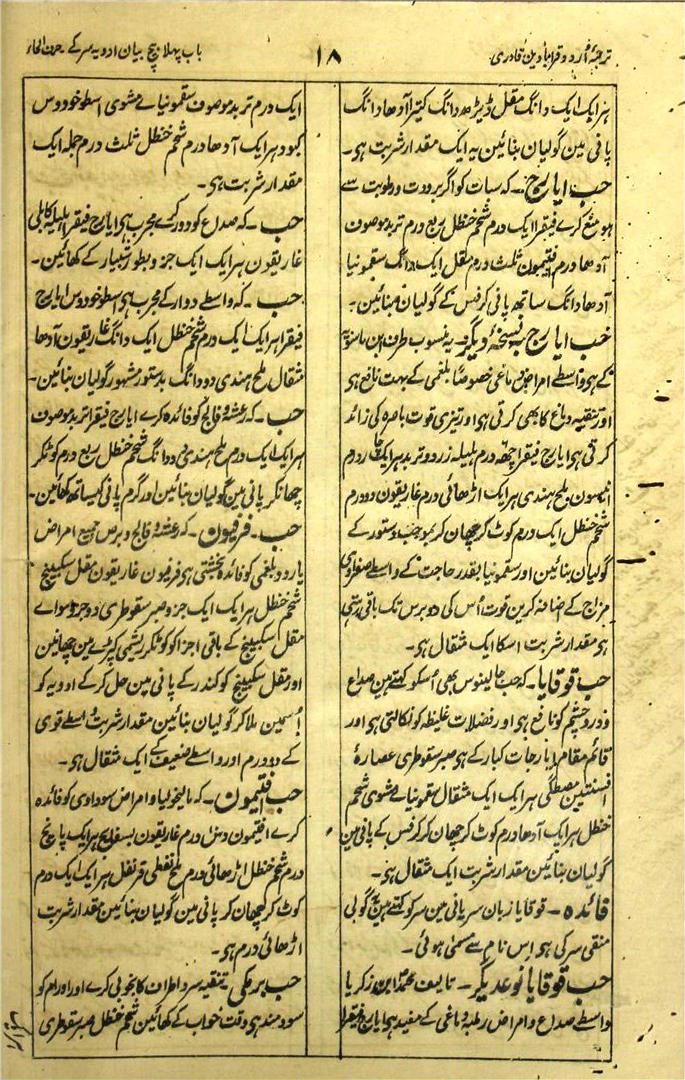 ترجمۂ اُردو قرابادین قادری
۱۸
باب پہلا بیچ بیان ادویہ سر کے حرف الحاء
ہر ایک ایک دانگ مقل ڈیڑھ دانگ کتیرا آدھا دانگ
پانی مین گولیان بنائین یہ ایک مقدار شربت ہی۔
حب ایارج۔ کہ سبات کو اگر برودت و رطوبت سے
ہو منع کرے فیقرا ایک درم شحم حنظل ربع درم تربد موصوف
آدھا درم افتیمون ثلث درم مقل ایک دانگ سقمونیا
آدھا دانگ ساتھ پانی کرفس کے گولیان بنائین۔
حب ایارج بنسخۂ دیگر۔ یہ منسوب طرف ابن ماسویہ
کے ہی واسطے امراض دماغی خصوصًا بلغمی کے بہت نافع ہی
اور تنقیہ دماغ کا بھی کرتی ہی اور تیزی قوت باصرہ کی زائد
کرتی ہی ایارج فیقرا چھ درم ہلیلہ زرد و تربد ہر ایک چار درم
انیسون ملح ہندی ہر ایک اڑھائی درم غاریقون دو درم
شحم حنظل ایک درم کوٹ کر چھان کر بموجب دستور کے
گولیان بنائین اور سقمونیا بقدر حاجت کے واسطے صفراوی
مزاج کے اضافہ کرین قوت اُس کی دو برس تک باقی رہتی
ہی مقدار شربت اسکا ایک مثقال ہی۔
حب قوقایا۔ کہ حب جالینوس بھی اُسکو کہتے ہین صداع
و درد چشم کو نافع ہی اور فضلات غلیظہ کو نکالتی ہی اور
قائم مقام ایارجات کبار کے ہی صبر سقوطری عصارۂ
افسنتین مصطگی ہر ایک ایک مثقال سقمونیاے مشوی شحم
حنظل ہر ایک آدھا درم کوٹ کر چھان کر کرفس کے پانی مین
گولیان بنائین مقدار شربت ایک مثقال ہی۔
فائدہ۔ قوقایا زبان سریانی مین سر کو کہتے ہین یہ گولی
منقی سر کی ہی اس نام سے مسمی ہوئی۔
حب قوقایا نوعدیگر۔ تالیف محمد ابن زکریا
واسطے صداع و امراض رطبۂ دماغی کے مفید ہی ایارج فیقرا
ایک درم تربد موصوف سقمونیاے مشوی اسطوخودوس
کبود ہر ایک آدھا درم شحم حنظل ثلث درم جملہ ایک
مقدار شربت ہی۔
حب۔ کہ صداع کو دور کرے مجرب ہی ایارج فیقرا ہلیلہ کابلی
غاریقون ہر ایک ایک جز و بطور شبیار کے کھائین۔
حب۔ کہ واسطے دوار کے مجرب ہی اسطوخودوس ایارج
فیقرا ہر ایک ایک درم شحم حنظل ایک دانگ غاریقون آدھا
مثقال ملح ہندی دو دانگ بدستور مشہور گولیان بنائین۔
حب۔ کہ رعشہ و فالج کو فائدہ کرے ایارج فیقرا تربد موصوف
ہر ایک ایک درم ملح ہندی دو دانگ شحم حنظل ربع درم کوٹکر
چھانکر پانی مین گولیان بنائین اور گرم پانی کیساتھ کھائین۔
حب۔ فرفیون۔ کہ رعشہ و فالج و برص جمیع امراض
بارد و بلغمی کو فائدہ بخشتی ہی فرفیون غاریقون مقل سکبینج
شحم حنظل ہر ایک ایک جز و صبر سقوطری دو جزو سواے
مقل سکبینج کے باقی اجزا کو کوٹکر ریشمی کپڑے مین چھانین
اور مقل سکبینج کو کندر کے پانی مین حل کر کے ادویہ کو
اُسمین ملا کر گولیان بنائین مقدار شربت واسطے قوی
کے دو درم اور واسطے ضعیف کے ایک مثقال ہی۔
حب افتیمون۔ کہ مالیخولیا و امراض سوداوی کو فائدہ
کرے افتیمون دس درم غاریقون بسفایج ہر ایک پانچ
درم شحم حنظل اڑھائی درم ملح نفطی قرنفل ہر ایک ایک درم
کوٹ کر چھان کر پانی مین گولیان بنائین مقدار شربت
اڑھائی درم ہی۔
حب برمکی تنقیہ سر و اطراف کا بخوبی کرے اور اورام کو
سودمند ہی وقت خواب کے کھائین شحم حنظل صبر سقوطری